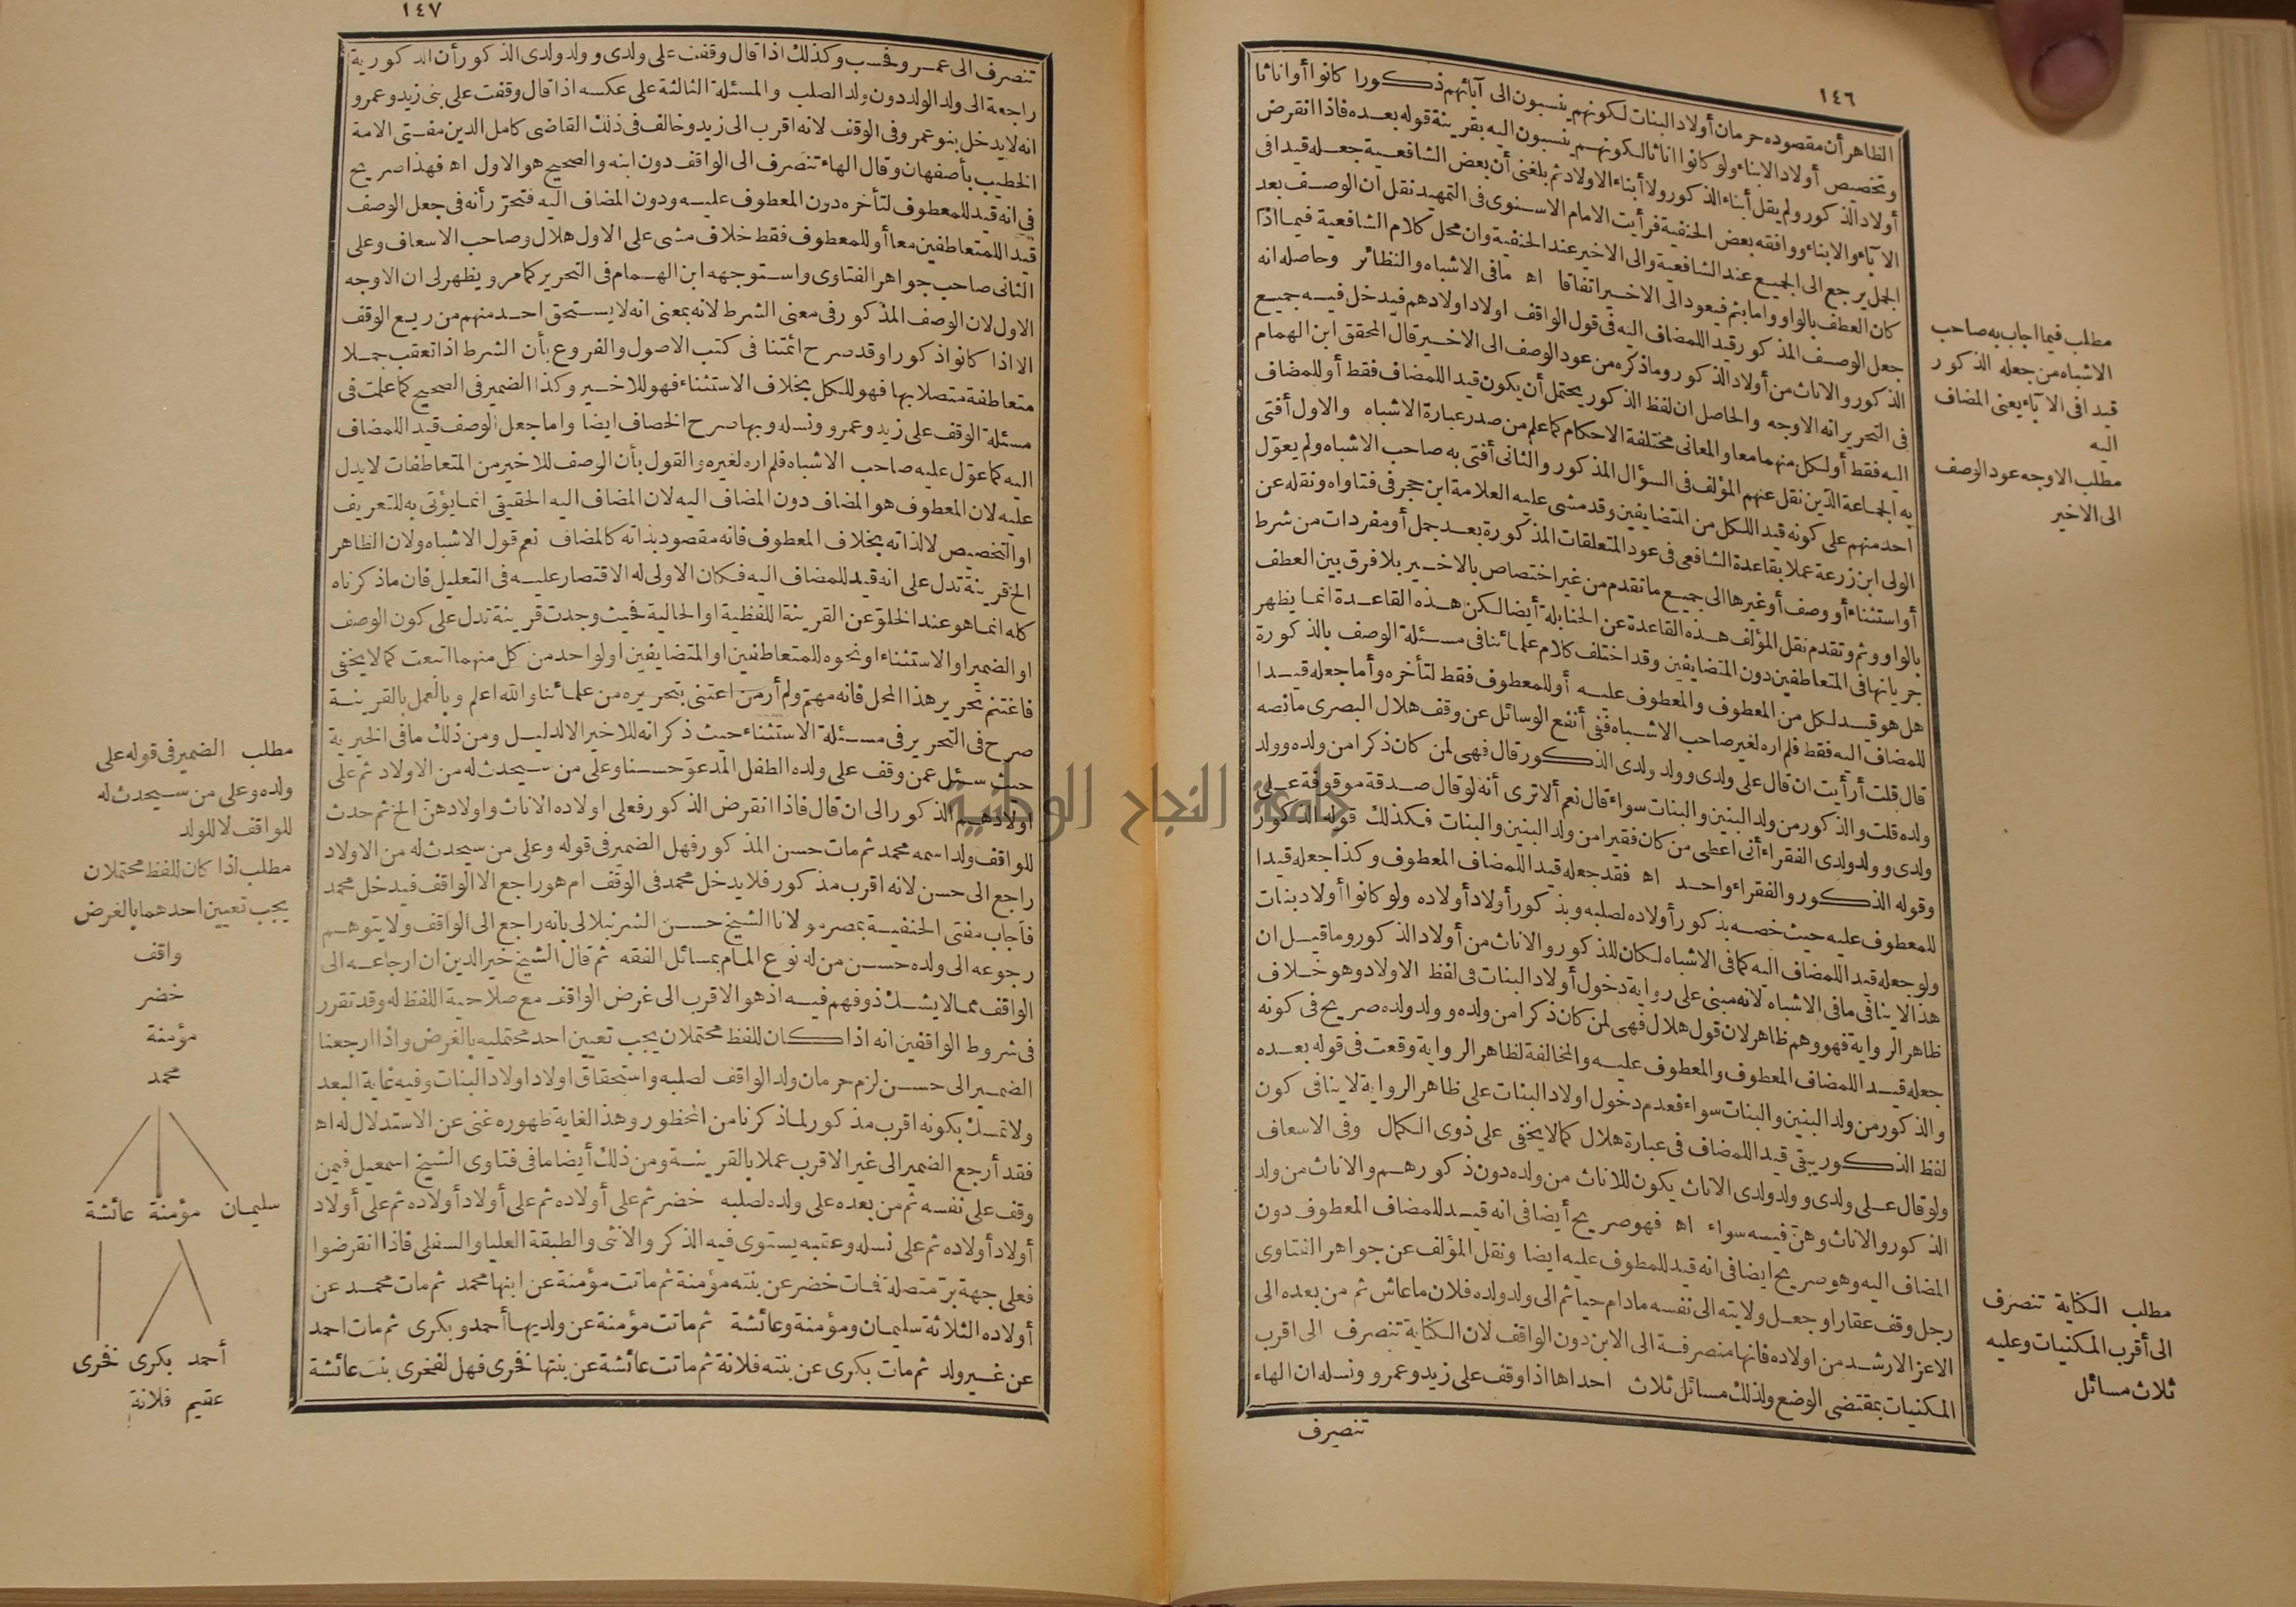 ١٤٦
الظاهر أن مقصوده حرمان أولاد البنات لكونهم ينسبون الى آبائهم ذكورا كانوا أو اناثا
وتخصيص أولاد الابناء ولو كانوا اناثا لكونهم ينسبون اليه بقرينة قوله بعده فاذا انقرض
أولاد الذكور ولم يقل أبناء الذكور ولا أبناء الاولاد ثم بلغنى أن بعض الشافعية جعله قيدا فى
الآباء والابناء ووافقه بعض الحنفية فرأيت الامام الاسنوى فى التمهيد نقل ان الوصف بعد
الجمل يرجع الى الجميع عند الشافعية والى الاخير عند الحنفية وان محل كلام الشافعية فيما اذا
كان العطف بالواو واما بثم فيعود الى الاخير اتفاقا اه مافى الاشباه والنظائر وحاصله انه
جعل الوصف المذكور قيد اللمضاف اليه فى قول الواقف اولاد اولادهم فيدخل فيه جميع
الذكور والاناث من أولاد الذكور وماذكره من عود الوصف الى الاخير قال المحقق ابن الهمام
فى التحرير انه الاوجه والحاصل ان لفظ الذكور يحتمل أن يكون قيد اللمضاف فقط أو للمضاف
اليه فقط أو لكل منهما معا والمعانى مختلفة الاحكام كما علم من صدر عبارة الاشباه والاول أفتى
به الجماعة الذين نقل عنهم المؤلف فى السؤال المذكور والثانى أفتى به صاحب الاشباه ولم يعوّل
احد منهم على كونه قيد اللكل من المتضايفين وقد مشى عليه العلامة ابن حجر فى فتاواه ونقله عن
الولى ابن زرعة عملا بقاعدة الشافعى فى عود المتعلقات المذكورة بعد جمل أو مفردات من شرط
أو استثناء أو وصف أو غيرها الى جميع ماتقدم من غير اختصاص بالاخير بلا فرق بين العطف
بالواو وثم وتقدم نقل المؤلف هذه القاعدة عن الحنابلة أيضا لكن هذه القاعدة انما يظهر
جريانها فى المتعاطفين دون المتضايفين وقد اختلف كلام علمائنا فى مسئلة الوصف بالذكورة
هل هو قيد لكل من المعطوف والمعطوف عليه أو للمعطوف فقط لتأخره وأما جعله قيدا
للمضاف اليه فقط فلم اره لغير صاحب الاشباه ففى أنفع الوسائل عن وقف هلال البصرى مانصه
قال قلت أرأيت ان قال على ولدى وولد ولدى الذكور قال فهى لمن كان ذكرا من ولده وولد
ولده قلت والذكور من ولد البنين والبنات سواء قال نعم ألا ترى أنه لو قال صدقة موقوفة على
ولدى وولد ولدى الفقراء أنى اعطى من كان فقيرا من ولد البنين والبنات فكذلك قوله الذكور
وقوله الذكور والفقراء واحد اه فقد جعله قيد اللمضاف المعطوف وكذا جعله قيدا
للمعطوف عليه حيث خصه بذكور أولاده لصلبه وبذكور أولاد أولاده ولو كانوا أولاد بنات
ولو جعله قيد اللمضاف اليه كما فى الاشباه لكان للذكور والاناث من أولاد الذكور وماقيل ان
هذا لا ينافى مافى الاشباه لانه مبنى على رواية دخول أولاد البنات فى لفظ الاولاد وهو خلاف
ظاهر الرواية فهو وهم ظاهر لان قول هلال فهى لمن كان ذكرا من ولده وولد ولده صريح فى كونه
جعله قيد اللمضاف المعطوف والمعطوف عليه والمخالفة لظاهر الرواية وقعت فى قوله بعده
والذكور من ولد البنين والبنات سواء فعدم دخول اولاد البنات على ظاهر الرواية لا ينافى كون
لفظ الذكور يبقى قيد اللمضاف فى عبارة هلال كما لا يخفى على ذوى الكمال وفى الاسعاف
ولو قال على ولدى وولد ولدى الاناث يكون للاناث من ولده دون ذكورهم والاناث من ولد
الذكور والاناث وهنّ فيه سواء اه فهو صريح أيضا فى انه قيد للمضاف المعطوف دون
المضاف اليه وهو صريح ايضا فى انه قيد للمعطوف عليه ايضا ونقل المؤلف عن جواهر الفتاوى
رجل وقف عقارا وجعل ولايته الى نفسه مادام حيا ثم الى ولد ولده فلان ماعاش ثم من بعده الى
الاعز الارشد من اولاده فانها منصرفة الى الابن دون الواقف لان الكناية تنصرف الى اقرب
المكنيات بمقتضى الوضع ولذلك مسائل ثلاث احداها اذا وقف على زيد وعمرو ونسله ان الهاء
تنصرف
مطلب فيما اجاب به صاحب
الاشباه من جعله الذكور
قيدا فى الآباء يعنى المضاف
اليه
مطلب الاوجه عود الوصف
الى الاخير
مطلب الكناية تنصرف
الى أقرب المكنيات وعليه
ثلاث مسائل
١٤٧
تنصرف الى عمرو فحسب وكذلك اذا قال وقفت على ولدى وولد ولدى الذكور أن الذكورية
راجعة الى ولد الولد دون ولد الصلب والمسئلة الثالثة على عكسه اذا قال وقفت على بنى زيد وعمرو
انه لا يدخل بنو عمرو فى الوقف لانه اقرب الى زيد وخالف فى ذلك القاضى كامل الدين مفتى الامة
الخطيب بأصفهان وقال الهاء تنصرف الى الواقف دون ابنه والصحيح هو الاول اه فهذا صريح
فى انه قيد للمعطوف لتأخره دون المعطوف عليه ودون المضاف اليه فتحرّر أنه فى جعل الوصف
قيد اللمتعاطفين معا أو للمعطوف فقط خلاف مشى على الاول هلال وصاحب الاسعاف وعلى
الثانى صاحب جواهر الفتاوى واستوجهه ابن الهمام فى التحرير كما مر ويظهر لى ان الاوجه
الاول لان الوصف المذكور فى معنى الشرط لانه بمعنى انه لا يستحق احد منهم من ريع الوقف
الا اذا كانوا ذكورا وقد صرح ائمتنا فى كتب الاصول والفروع بأن الشرط اذا تعقب جملا
متعاطفة متصلا بها فهو للكل بخلاف الاستثناء فهو للاخير وكذا الضمير فى الصحيح كما علمت فى
مسئلة الوقف على زيد وعمرو ونسله وبها صرح الخصاف ايضا واما جعل الوصف قيد اللمضاف
اليه كما عوّل عليه صاحب الاشباه فلم اره لغيره والقول بأن الوصف للاخير من المتعاطفات لا يدل
عليه لان المعطوف هو المضاف دون المضاف اليه لان المضاف اليه الحقيقى انما يؤتى به للتعريف
او التخصيص لا لذاته بخلاف المعطوف فانه مقصود بذاته كالمضاف نعم قول الاشباه ولان الظاهر
الخ قرينة تدل على انه قيد للمضاف اليه فكان الاولى له الاقتصار عليه فى التعليل فان ماذكرناه
كله انما هو عند الخلوّ عن القرينة اللفظية او الحالية فحيث وجدت قرينة تدل على كون الوصف
او الضمير او الاستثناء او نحوه للمتعاطفين او المتضايفين او لواحد من كل منهما اتبعت كما لا يخفى
فاغتنم تحرير هذا المحل فانه مهمّ ولم أر من اعتنى بتحريره من علمائنا والله اعلم وبالعمل بالقرينة
صرح فى التحرير فى مسئلة الاستثناء حيث ذكر انه للاخير الا لدليل ومن ذلك مافى الخيرية
حيث سئل عمن وقف على ولده الطفل المدعوّ حسنا وعلى من سيحدث له من الاولاد ثم على
اولادهم الذكور الى ان قال فاذا انقرض الذكور فعلى اولاده الاناث واولادهنّ الخ ثم حدث
للواقف ولد اسمه محمد ثم مات حسن المذكور فهل الضمير فى قوله وعلى من سيحدث له من الاولاد
راجع الى حسن لانه اقرب مذكور فلا يدخل محمد فى الوقف ام هو راجع الا الواقف فيدخل محمد
فأجاب مفتى الحنفية بمصر مولانا الشيخ حسن الشرنبلالى بانه راجع الى الواقف ولا يتوهم
رجوعه الى ولده حسن من له نوع المام بمسائل الفقه ثم قال الشيخ خير الدين ان ارجاعه الى
الواقف مما لا يشك ذو فهم فيه اذ هو الاقرب الى غرض الواقف مع صلاحية اللفظ له وقد تقرر
فى شروط الواقفين انه اذا كان للفظ محتملان يجب تعيين احد محتمليه بالغرض واذا ارجعنا
الضمير الى حسن لزم حرمان ولد الواقف لصلبه واستحقاق اولاد اولاد البنات وفيه غاية البعد
ولا تمسك بكونه اقرب مذكور لما ذكرنا من المحظور وهذا لغاية ظهوره غنى عن الاستدلال له اه
فقد أرجع الضمير الى غير الاقرب عملا بالقرينة ومن ذلك أيضا مافى فتاوى الشيخ اسمعيل فيمن
وقف على نفسه ثم من بعده على ولده لصلبه خضر ثم على أولاده ثم على أولاد أولاده ثم على أولاد
أولاد أولاده ثم على نسله وعقبه يستوى فيه الذكر والانثى والطبقة العليا والسفلى فاذا انقرضوا
فعلى جهة برّ متصلة فمات خضر عن بنته مؤمنة ثم ماتت مؤمنة عن ابنها محمد ثم مات محمد عن
أولاده الثلاثة سليمان ومؤمنة وعائشة ثم ماتت مؤمنة عن ولديها أحمد وبكرى ثم مات احمد
عن غير ولد ثم مات بكرى عن بنته فلانة ثم ماتت عائشة عن بنتها فخرى فهل لفخرى بنت عائشة
مطلب الضمير فى قوله على
ولده وعلى من سيحدث له
للواقف لا للولد
مطلب اذا كان للفظ محتملان
يجب تعيين احدهما بالغرض
واقف
خضر
مؤمنة
محمد
سليمان مؤمنة عائشة
أحمد بكرى فخرى
عقيم فلانة
جامعة النجاح الوطنية